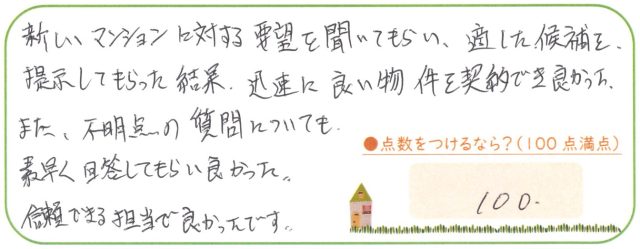 新しいマンションに対する要望を聞いてもらい、適した候補を、
提示してもらった結果、迅速に良い物件を契約でき良かった。
また、不明点の質問についても、
素早く回答してもらい良かった。
信頼できる担当で良かったです。
●点数をつけるなら？(100点満点)
100.